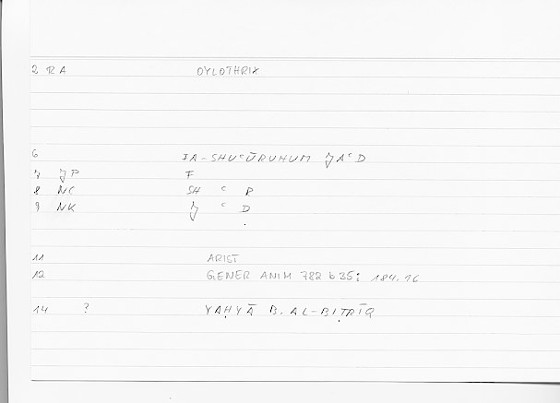 2 RA OYLOTHRIX
6 FA-SHUʿŪRUHUM JAʿD
7 JP F
8 NC SH ʿ R
9 NK J ʿ D
11 ARIST
12 GENER ANIM 782 b 35; 184.16
14 ? YAḤYĀ B. AL-BIṬRĪQ